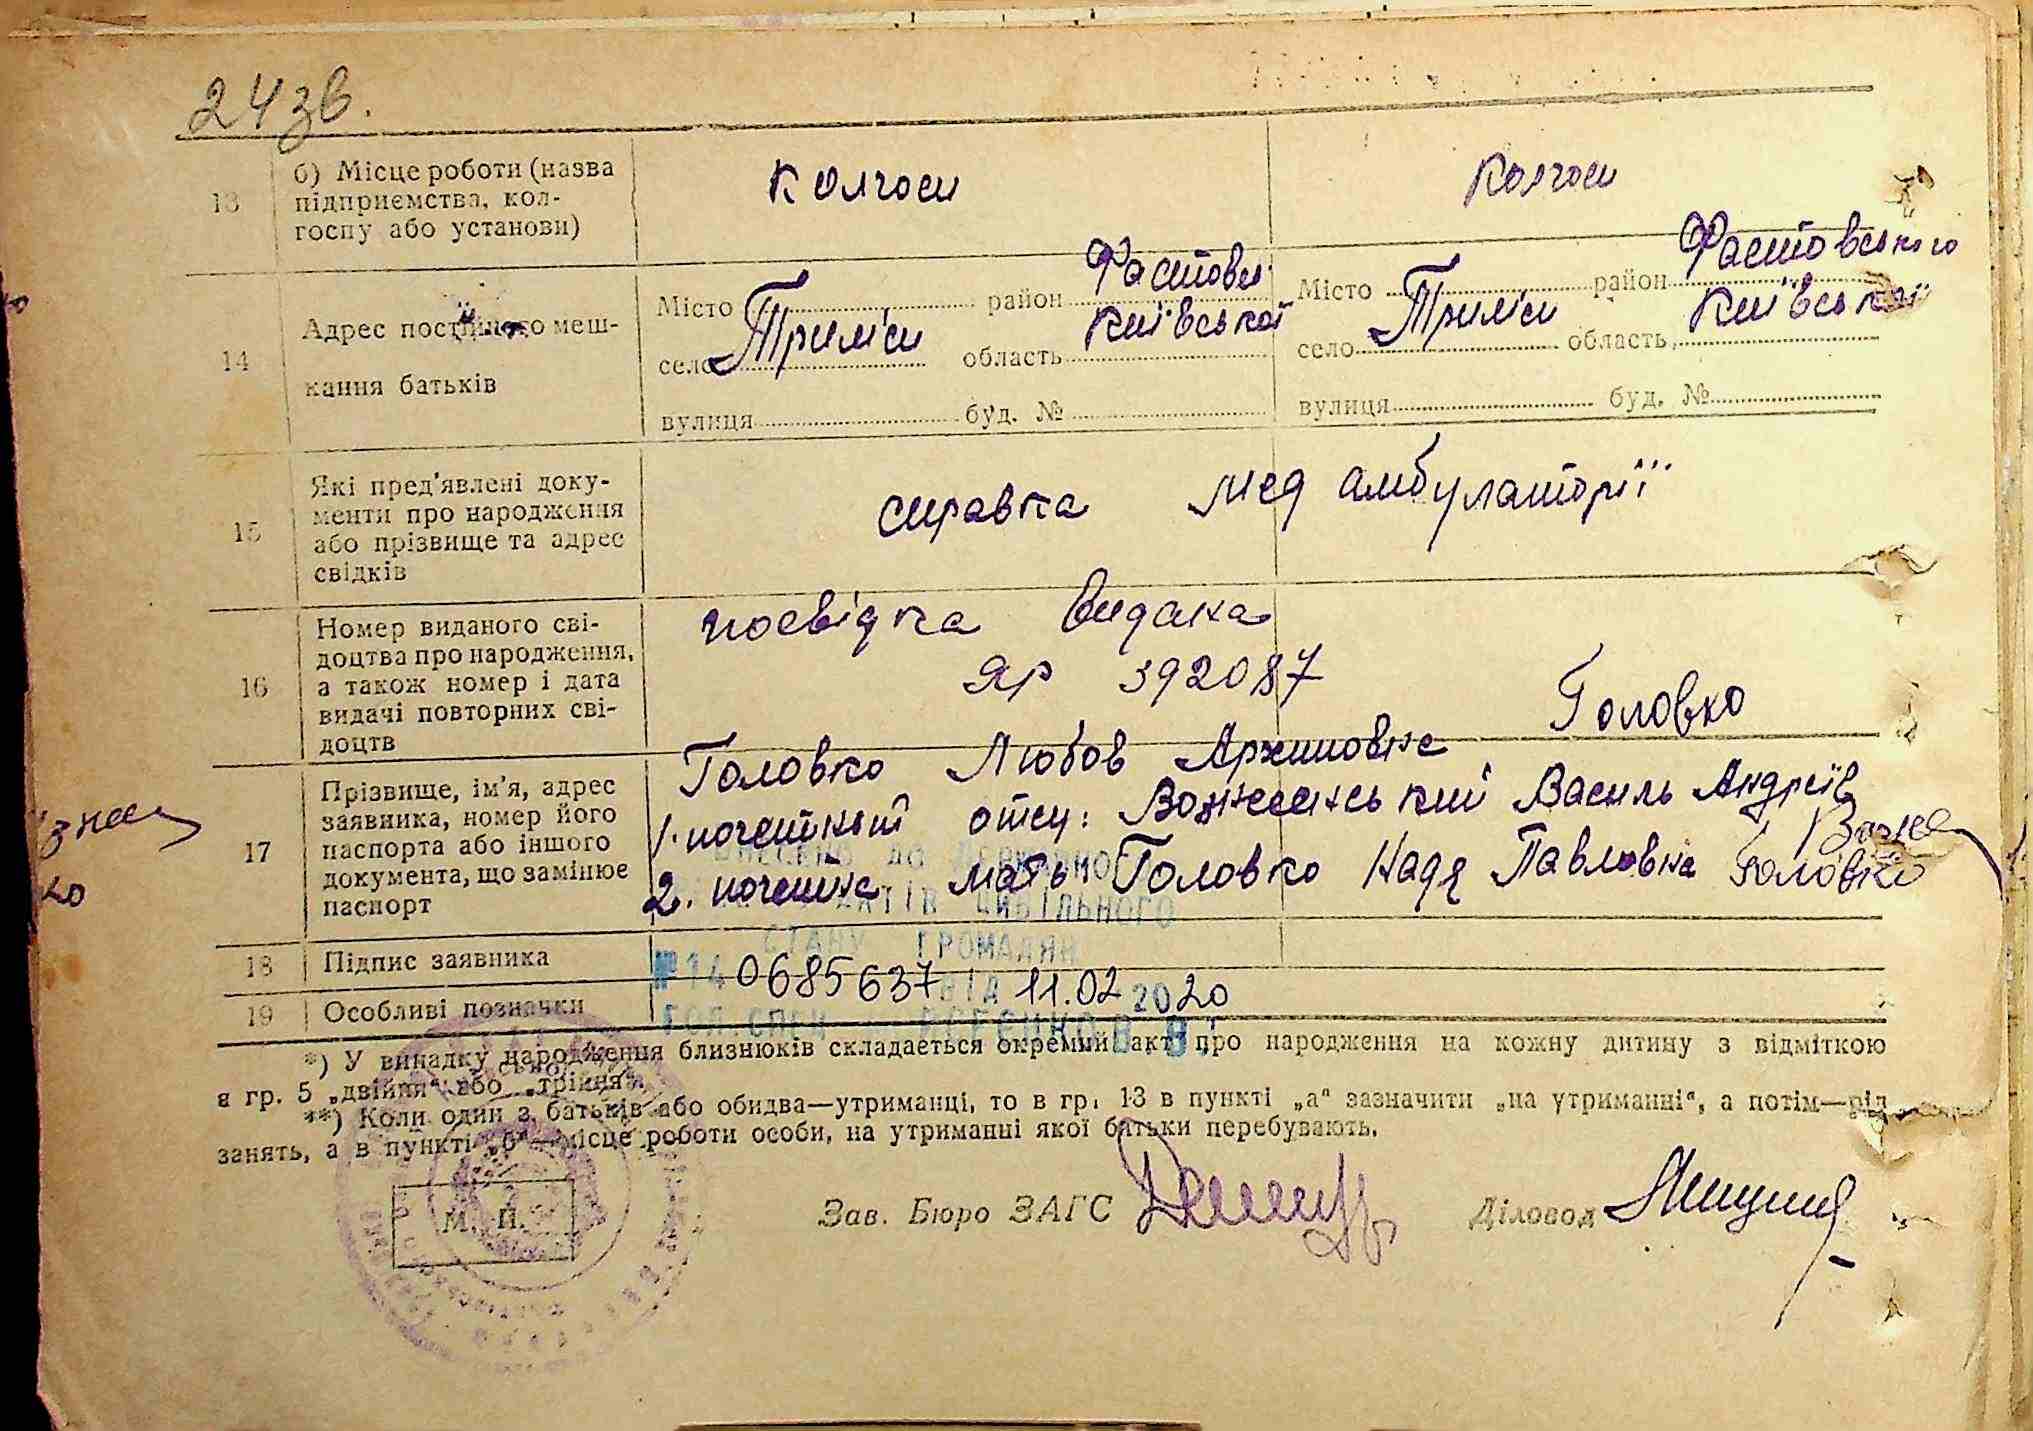 24 зв.
13
б) Місце роботи (назва
підприємства, кол-
госпу або установи)
колгосп
колгосп
14
Адрес постійного меш-
кання батьків
Місто район Фастовсь
село Триліси область Київської
вулиця буд. №
Місто район Фастовського
село Триліси область Київської
вулиця буд. №
15
Які пред'явлені доку-
менти про народження
або прізвище та адрес
свідків
справка мед амбулаторії
16
Номер виданого сві-
доцтва про народження,
а також номер і дата
видачі повторних сві-
доцтв
посвідка видана
ЯР 392087
17
Прізвище, ім'я, адрес
заявника, номер його
паспорта або іншого
документа, що замінює
паспорт
Головко Любов Архиповна Головко
1. отец: Василь Андріїв
2. мать Головко Надя Павловна Головко
ВНЕСЕНО ДО ДЕРЖАВНОГО
АКТІВ ЦИВІЛЬНОГО
СТАНУ ГРОМАДЯН
18
Підпис заявника
№ 14 0685637 ВІД 11.02 2020
19
Особливі позначки
ГОЛ.СПЕЦ
*) У випадку народження близнюків складається окремий акт про народження на кожну дитину з відміткою
в гр. 5 „двійня“ або „трійня“.
**) Коли один з батьків або обидва—утриманці, то в гр. 13 в пункті „а“ зазначити „на утриманні“, а потім—рід
занять, а в пункті „б“—місце роботи особи, на утриманні якої батьки перебувають.
М. П.
Зав. Бюро ЗАГС
Діловод